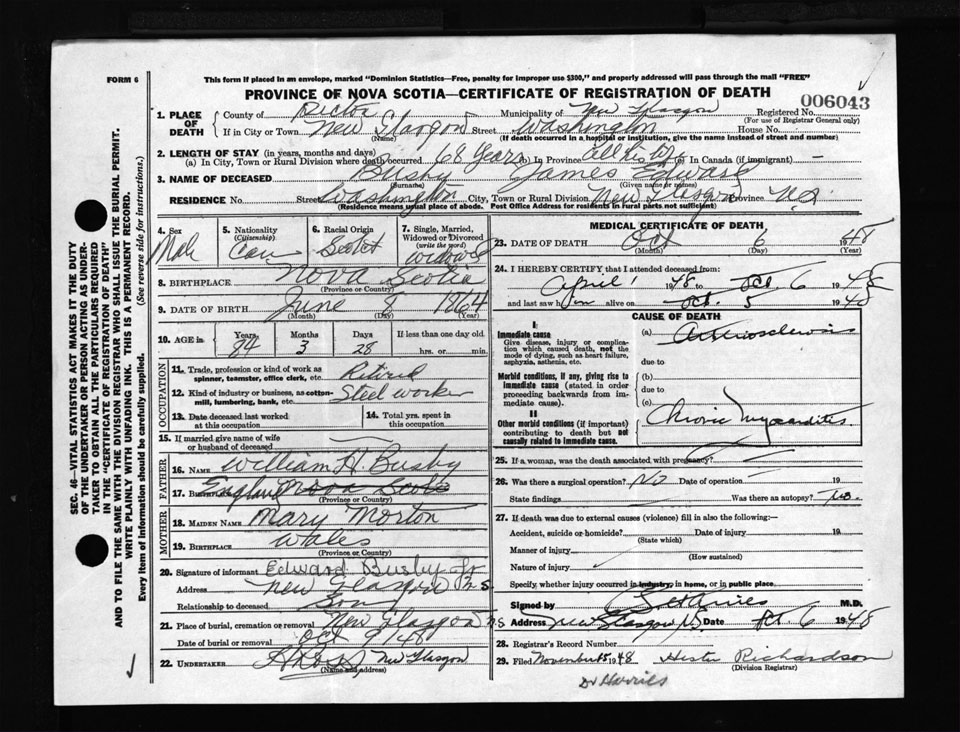 FORM 6
This form if placed in an envelope, marked "Dominion Statistics—Free, penalty for improper use $300," and properly addressed will pass through the mail "FREE"
PROVINCE OF NOVA SCOTIA—CERTIFICATE OF REGISTRATION OF DEATH
1. PLACE OF DEATH County of Pictou Municipality of New Glasgow Registered No. 006043
(For use of Registrar General only)
If in City or Town New Glasgow Street Washington House No.
(Name) (If death occurred in a hospital or institution, give the name instead of street and number)
2. LENGTH OF STAY (in years, months and days)
(a) In City, Town or Rural Division where death occurred 68 Years (b) In Province all his life (c) In Canada (if immigrant) —
3. NAME OF DECEASED Busby James Edward
(Surname) (Given name or names)
RESIDENCE No. Street Washington City, Town or Rural Division New Glasgow Province N.S.
(Residence means usual place of abode. Post Office Address for residents in rural parts not sufficient)
4. Sex Male
5. Nationality (Citizenship) Can
6. Racial Origin Scotch
7. Single, Married, Widowed or Divorced (write the word) widowed
8. BIRTHPLACE Nova Scotia
(Province or Country)
9. DATE OF BIRTH June 8 1864
(Month) (Day) (Year)
10. AGE in Years 84 Months 3 Days 28 If less than one day old hrs. or min.
OCCUPATION
11. Trade, profession or kind of work as spinner, teamster, office clerk, etc. Retired
12. Kind of industry or business, as cotton-mill, lumbering, bank, etc. Steel worker
13. Date deceased last worked at this occupation
14. Total yrs. spent in this occupation
15. If married give name of wife or husband of deceased —
FATHER
16. NAME William H. Busby
17. Birthplace England Nova Scotia
(Province or Country)
MOTHER
18. MAIDEN NAME Mary Morton
19. BIRTHPLACE Wales
(Province or Country)
20. Signature of informant Edward Busby Jr
Address New Glasgow N.S.
Relationship to deceased Son
21. Place of burial, cremation or removal New Glasgow N.S.
Date of burial or removal Oct 9/48
22. UNDERTAKER New Glasgow
(Name and address)
MEDICAL CERTIFICATE OF DEATH
23. DATE OF DEATH Oct 6 1948
(Month) (Day) (Year)
24. I HEREBY CERTIFY that I attended deceased from:
April 1 1948 to Oct. 6 1948
and last saw him alive on Oct. 5 1948
CAUSE OF DEATH
I
Immediate cause
Give disease, injury or complication which caused death, not the mode of dying, such as heart failure, asphyxia, asthenia, etc.
(a) Arteriosclerosis
due to
Morbid conditions, if any, giving rise to immediate cause (stated in order proceeding backwards from immediate cause).
(b)
due to
(c)
II
Other morbid conditions (if important) contributing to death but not causally related to immediate cause.
Chronic myocarditis
25. If a woman, was the death associated with pregnancy? —
26. Was there a surgical operation? No Date of operation — 19
State findings Was there an autopsy? No.
27. If death was due to external causes (violence) fill in also the following:—
Accident, suicide or homicide? Date of injury 19
(State which)
Manner of injury
(How sustained)
Nature of injury
Specify, whether injury occurred in industry, in home, or in public place
Signed by M.D.
Address New Glasgow N.S. Date Oct. 6 1948
28. Registrar's Record Number
29. Filed November 15 1948 Hester Richardson
(Division Registrar)
Dr Harries
SEC. 46—VITAL STATISTICS ACT MAKES IT THE DUTY
OF THE UNDERTAKER OR PERSON ACTING AS UNDERTAKER TO OBTAIN ALL THE PARTICULARS REQUIRED
IN THE "CERTIFICATE OF REGISTRATION OF DEATH"
AND TO FILE THE SAME WITH THE DIVISION REGISTRAR WHO SHALL ISSUE THE BURIAL PERMIT.
WRITE PLAINLY WITH UNFADING INK. THIS IS A PERMANENT RECORD.
Every item of information should be carefully supplied. (See reverse side for instructions.)